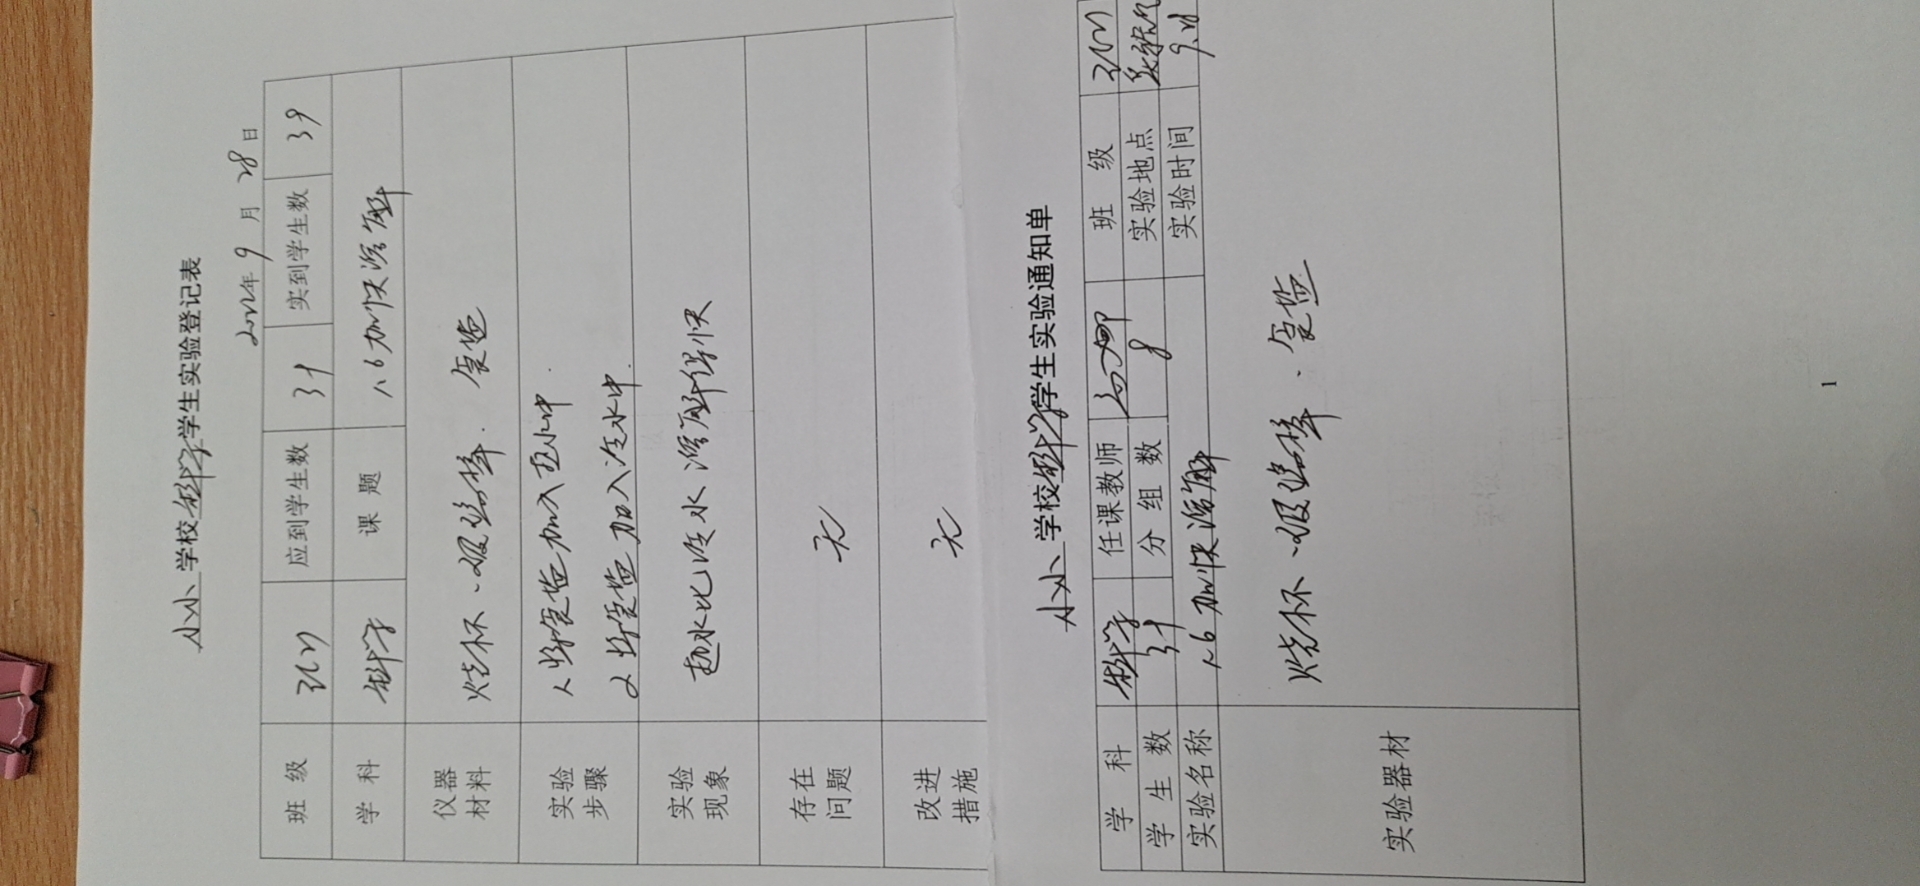 学校科学学生实验登记表
2022年9月28日
班 级 应到学生数 39 实到学生数 39
学 科 科学 课 题 1.6加快溶解
仪器材料 烧杯、吸搅棒、食盐
实验步骤 1 将食盐加入热水中.
2 将食盐加入冷水中.
实验现象 热水比冷水溶解得快
存在问题 无
改进措施 无
学校科学学生实验通知单
学 科 科学 任课教师 班 级
学 生 数 39 分 组 数 8 实验地点
实验名称 1.6加快溶解 实验时间
实验器材 烧杯、吸搅棒、食盐
1